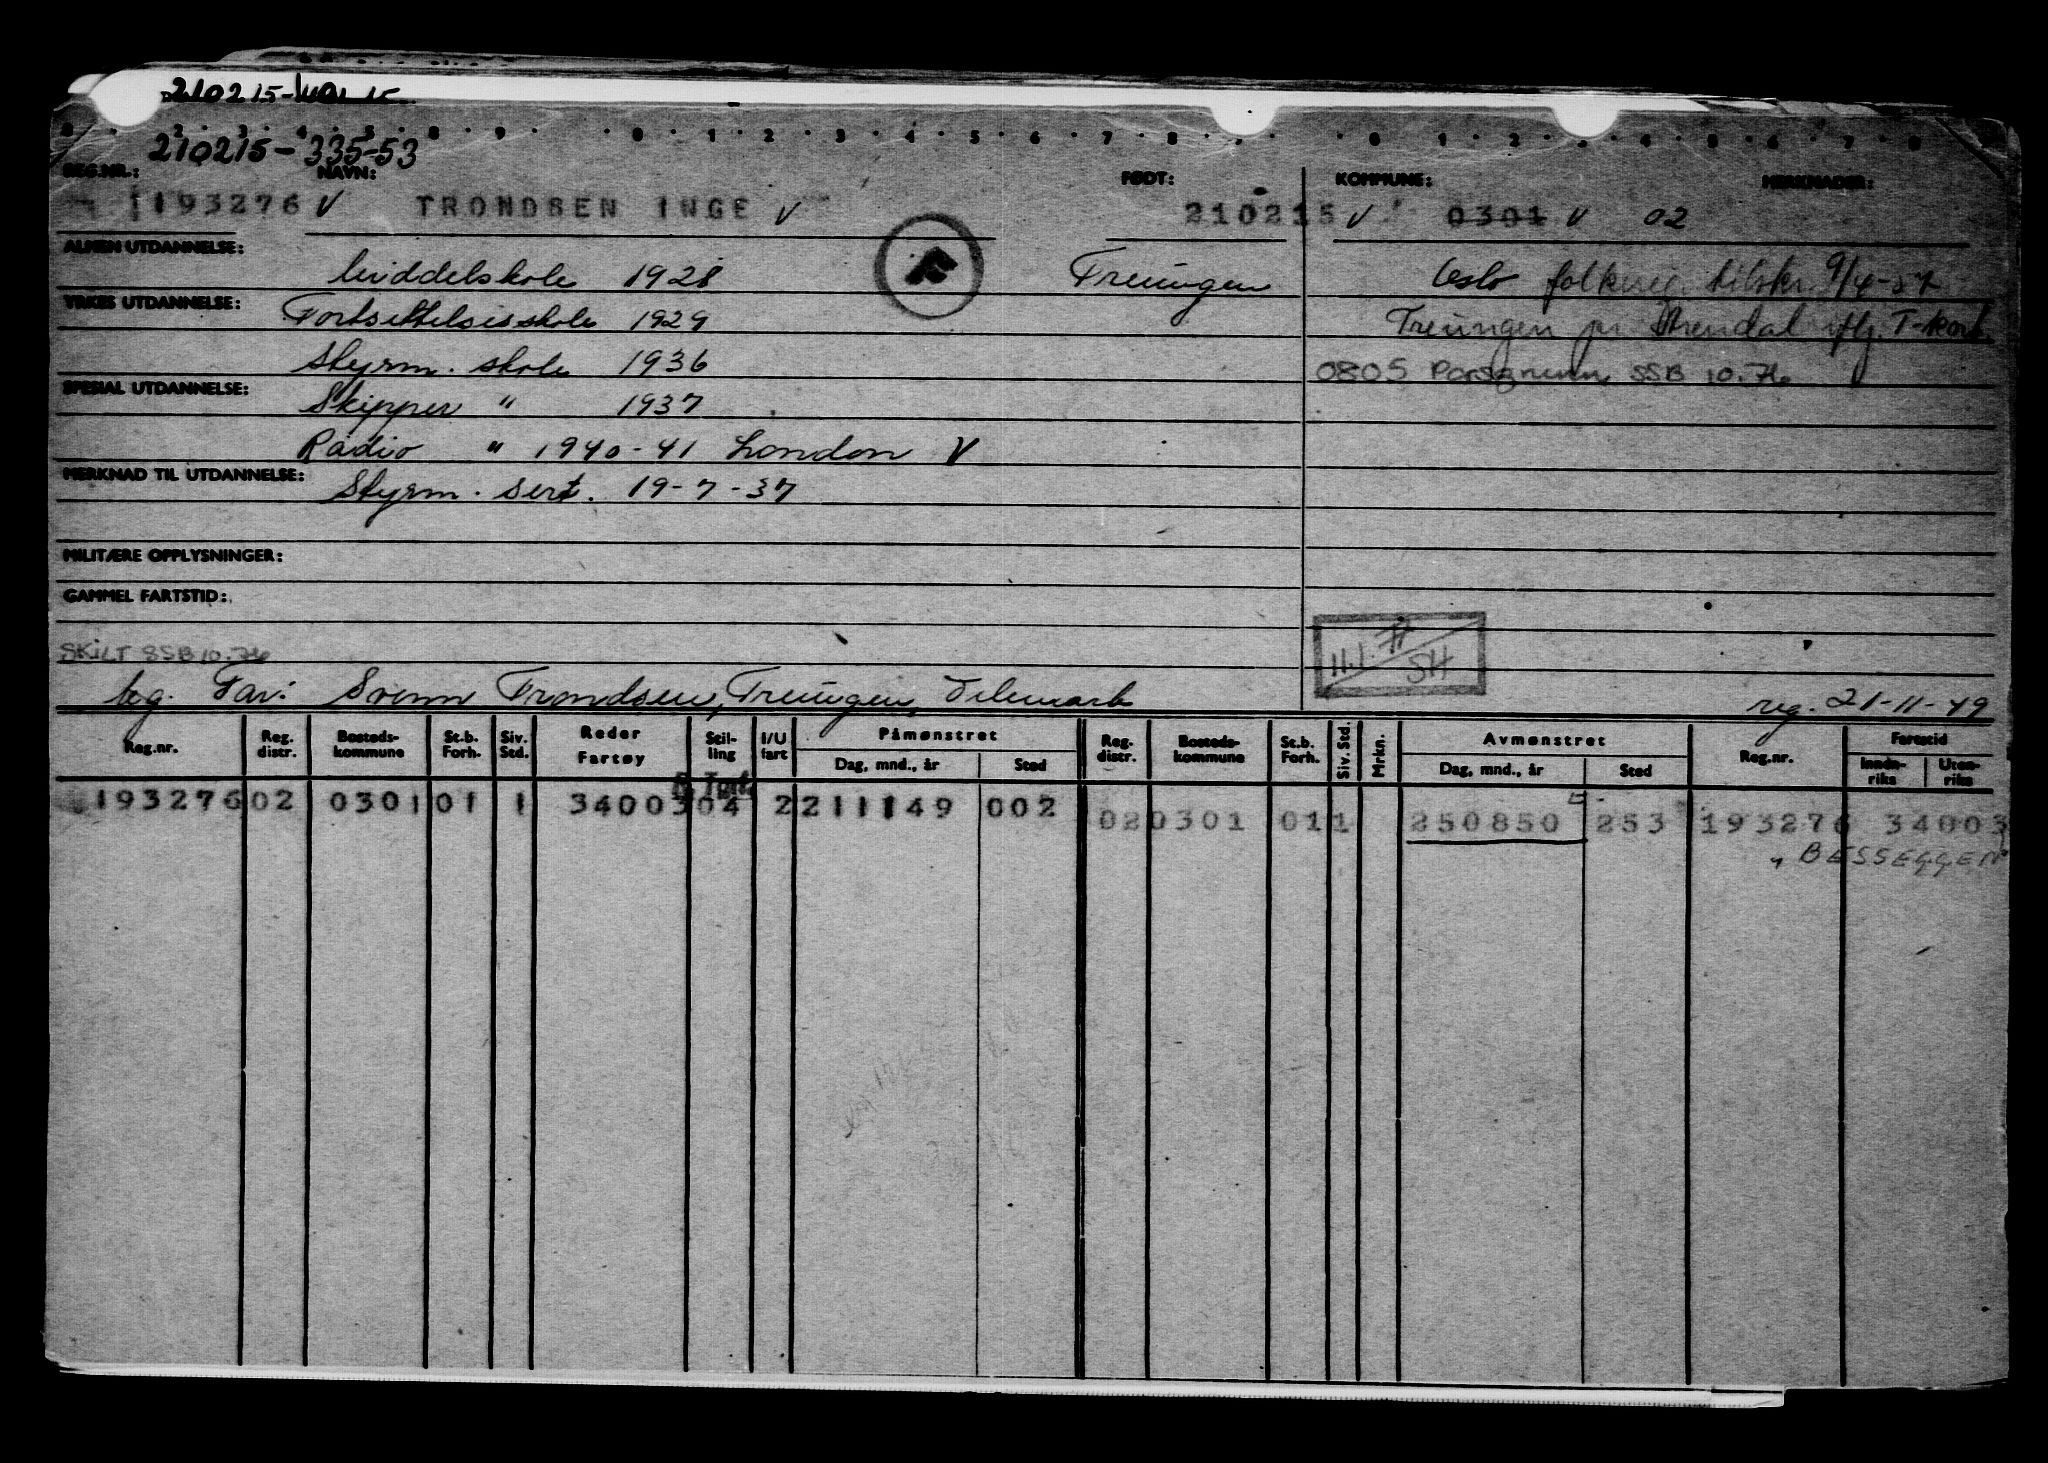 210215-
210215-335-53
REG.NR.: NAVN: FØDT: KOMMUNE: MERKNADER:
193276 V TRONDSEN INGE V 210215 V 0301 V 02
ALMEN UTDANNELSE: Middelskole 1928 Treungen Oslo folkereg. tilskr. 9/4-57
YRKES UTDANNELSE: Fortsettelsesskole 1929 Treungen pr. Arendal iflg. T-kort.
Styrm. skole 1936 0805 Porsgrunn SSB 10.76
SPESIAL UTDANNELSE: Skipper " 1937
Radio " 1940-41 London V
MERKNAD TIL UTDANNELSE: Styrm. sert. 19-7-37
MILITÆRE OPPLYSNINGER:
GAMMEL FARTSTID:
H.I. SH
SKILT SSB 10.76
Far: Svenn Trondsen, Treungen, Telemark reg. 21-11-49
Reg.nr. Reg. distr. Bosteds-kommune St.b. Forh. Siv. Std. Reder Fartøy Stil-ling I/U fart Påmønstret Dag, mnd., år Sted Reg. distr. Bosteds-kommune St.b. Forh. Siv. Std. Mrkn. Avmønstret Dag, mnd., år Sted Reg.nr. Fartstid Innen-riks Uten-riks
193276 02 0301 01 1 34003 04 2 211149 002 02 0301 01 1 250850 253 193276 34003
"BESSEGGEN"